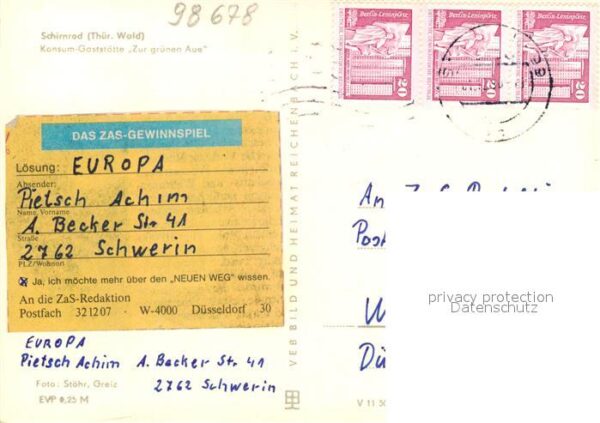 98678
Schirnrod (Thür. Wald)
Konsum-Gaststätte „Zur grünen Aue"
Berlin-Leninplatz
20
Berlin-Leninplatz
20
Berlin-Leninplatz
20
DAS ZAS-GEWINNSPIEL
Lösung: EUROPA
Absender:
Pietsch Achim
Name, Vorname
A. Becker Str 41
Straße
2762 Schwerin
PLZ/Wohnort
Ja, ich möchte mehr über den „NEUEN WEG" wissen.
An die ZaS-Redaktion
Postfach 321207 · W-4000 Düsseldorf 30
EUROPA
Pietsch Achim A. Becker Str 41
2762 Schwerin
Foto: Stöhr, Greiz
EVP 0,25 M
VEB BILD UND HEIMAT REICHENBACH i. V.
V 11 50
An
Post
W
Dü
privacy protection
Datenschutz